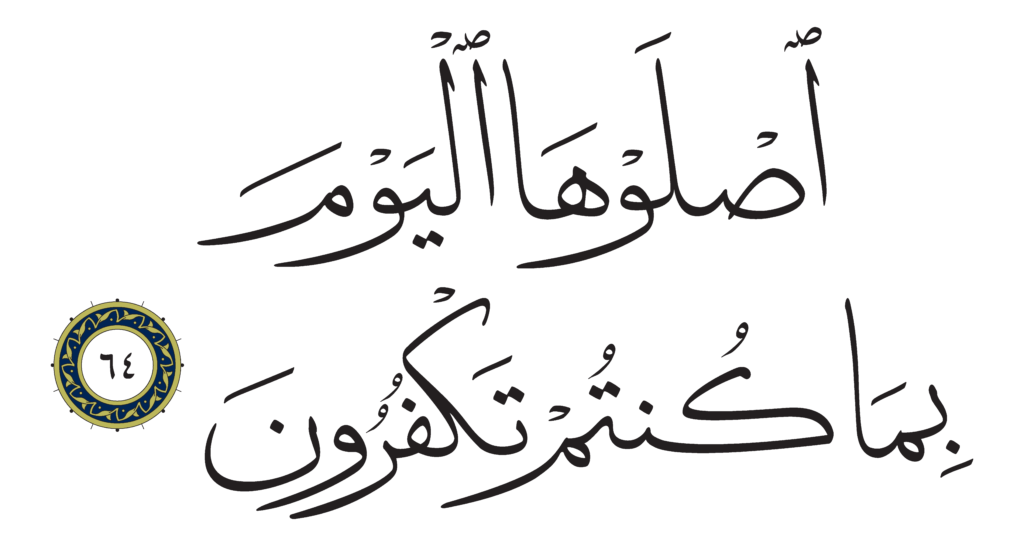 ٱصْلَوْهَا ٱلْيَوْمَ
بِمَا كُنتُمْ تَكْفُرُونَ ٦٤